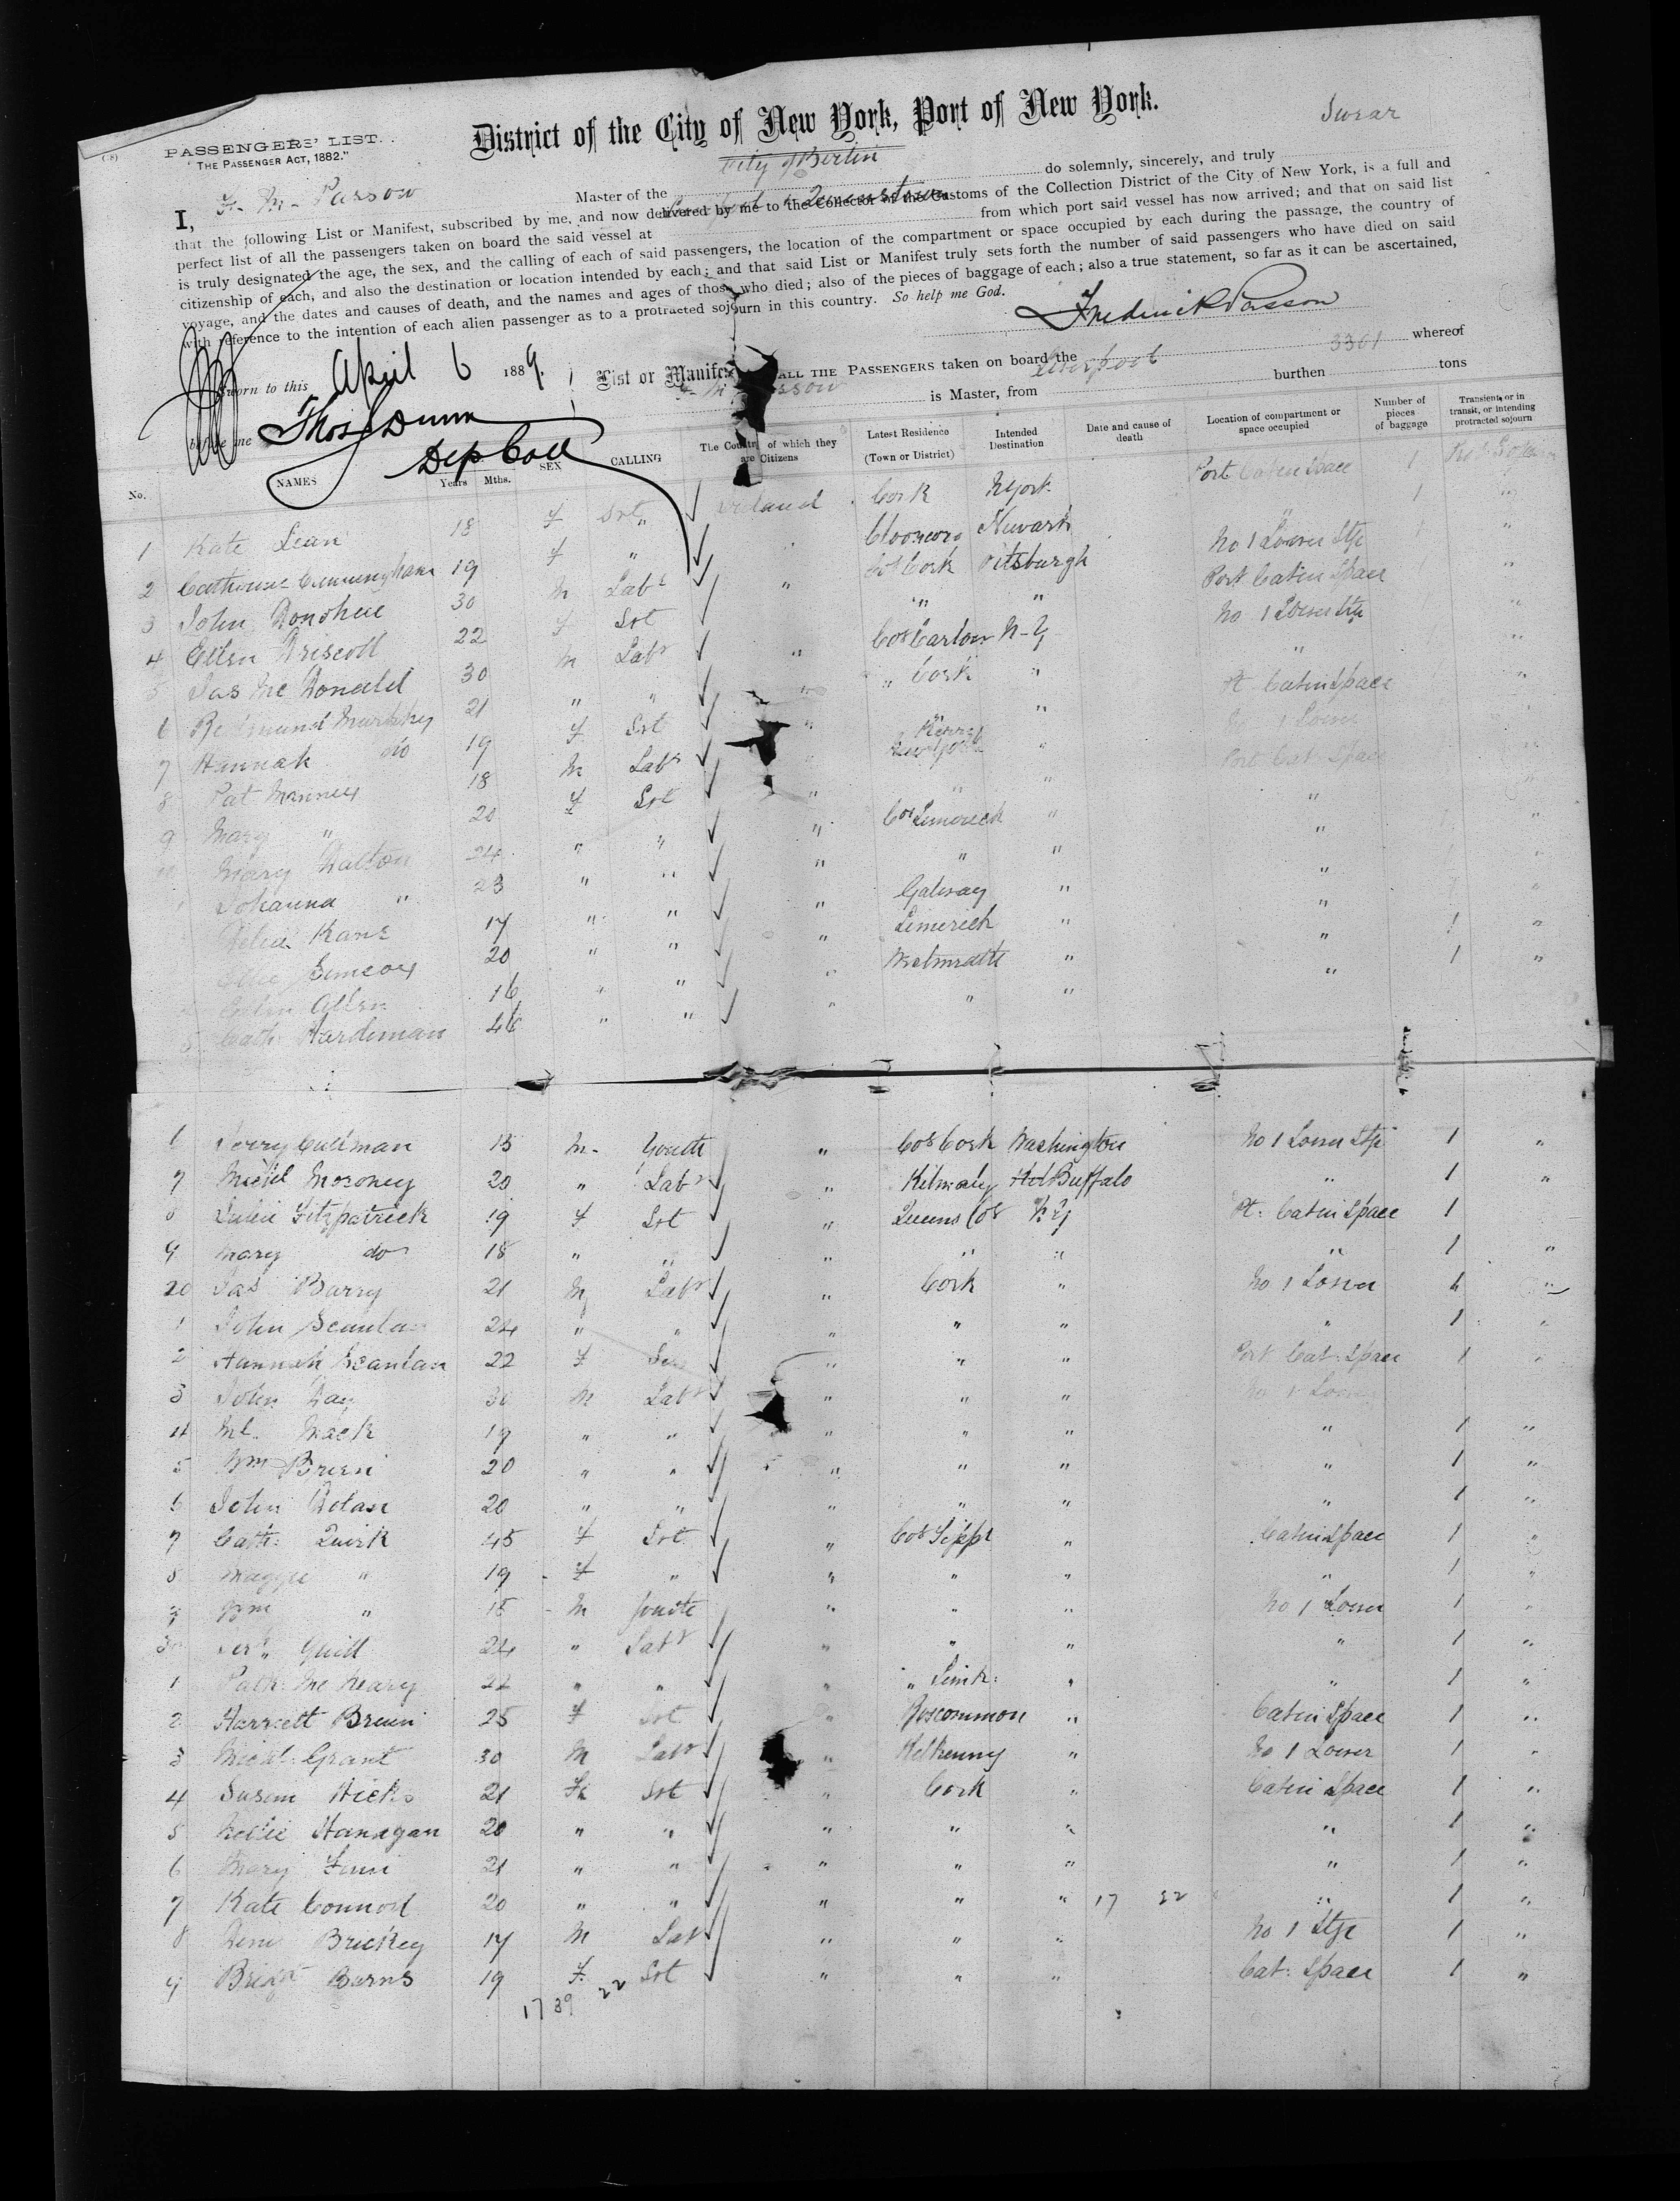 District of the City of New York, Port of New York.
Swear
PASSENGERS' LIST.
"THE PASSENGER ACT, 1882."
City of Berlin
I, F. M. Passow Master of the do solemnly, sincerely, and truly
that the following List or Manifest, subscribed by me, and now delivered by me to the Collector of the Customs of the Collection District of the City of New York, is a full and
perfect list of all the passengers taken on board the said vessel at Queenstown from which port said vessel has now arrived; and that on said list
is truly designated the age, the sex, and the calling of each of said passengers, the location of the compartment or space occupied by each during the passage, the country of
citizenship of each, and also the destination or location intended by each; and that said List or Manifest truly sets forth the number of said passengers who have died on said
voyage, and the dates and causes of death, and the names and ages of those who died; also of the pieces of baggage of each; also a true statement, so far as it can be ascertained,
with reference to the intention of each alien passenger as to a protracted sojourn in this country. So help me God.
Frederick Passow
Sworn to this April 6 1889.
List or Manifest ALL THE PASSENGERS taken on board the 3361 whereof
is Master, from Liverpool burthen tons
before me Thos Dunn
Dep Coll
No. NAMES Years Mths. SEX CALLING The Country of which they are Citizens Latest Residence (Town or District) Intended Destination Date and cause of death Location of compartment or space occupied Number of pieces of baggage Transient, or in transit, or intending protracted sojourn
1 Kate 18 F Srt Ireland Cork N York Port Cabin Space 1
2 Catherine Cunningham 19 F " Newark " 1 "
3 John Donohue 30 M Labr " Co Cork Pittsburgh No 1 Lower Stge "
4 Ellen Driscoll 22 F Srt " " Port Cabin Space "
5 Jas Mc Donald 30 M Labr " Cos Carlow N-Y No 1 Lower Stge "
6 Redmund Murphy 21 " " " " Cork " " "
7 Hannah do 19 F Srt " " Pt Cabin Space "
8 Pat 18 M Labr Kerry " No 1 Lower
9 Mary " 20 F Srt " " " Port Cab Space
10 Mary Dalton 24 " " " Cos Limerick " " "
1 Johanna " 23 " " " " " " "
Delia Kane 17 " " " Galway " " "
20 " " " Limerick " " 1 "
Ellen Allen 16 " " " Westmeath " " 1 "
5 Cath Hardiman " " " " " "
6 Jerry Cullman 13 M. Youth " Cos Cork Washington No 1 Lower Stge 1 "
7 Michl Moroney 20 " Labr " Buffalo " 1 "
8 Julia Fitzpatrick 19 F Srt " Queens Cos N Y Pt: Cabin Space 1
9 Mary do 18 " " " " " " 1 "
20 Jas Barry 21 M Labr " Cork " No 1 Lower 1 "
1 John Scanlan 24 " " " " " " 1 "
2 Hannah Scanlan 22 F " " " Port Cab: Space 1 "
3 John Day 30 M Labr " " " No 1 Lower
4 Ml. Mack 19 " " " " " " 1 "
5 Wm Brien 20 " " " " " " 1 "
6 John Dolan 20 " " " " " " 1 "
7 Cath: Quirk 45 F Srt " Cos Tippr " Cabin Space 1 "
8 Maggie " 19 F " " " " " 1 "
9 Wm " 15 M Youth " " " No 1 Lower 1 "
30 Quill 24 " Labr " " " " 1 "
1 Patk Mc Neary 22 " " " " Limk: " " 1 "
2 Harriett Breun 25 F Srt " Roscommon " Cabin Space 1 "
3 Michl Grant 30 M Labr " Kilkenny " No 1 Lower 1 "
4 Susan Hicks 21 F Srt " Cork " Cabin Space 1 "
5 Nellie Hanagan 20 " " " " " " 1 "
6 Mary Finn 21 " " " " " " 1 "
7 Kate Connor 20 " " " " " 17 32 " 1 "
8 Brickey 17 M Lab " " " No 1 Stge 1 "
9 Bridgt Burns 19 F. Srt " " " Cab: Space 1 "
17 39 22